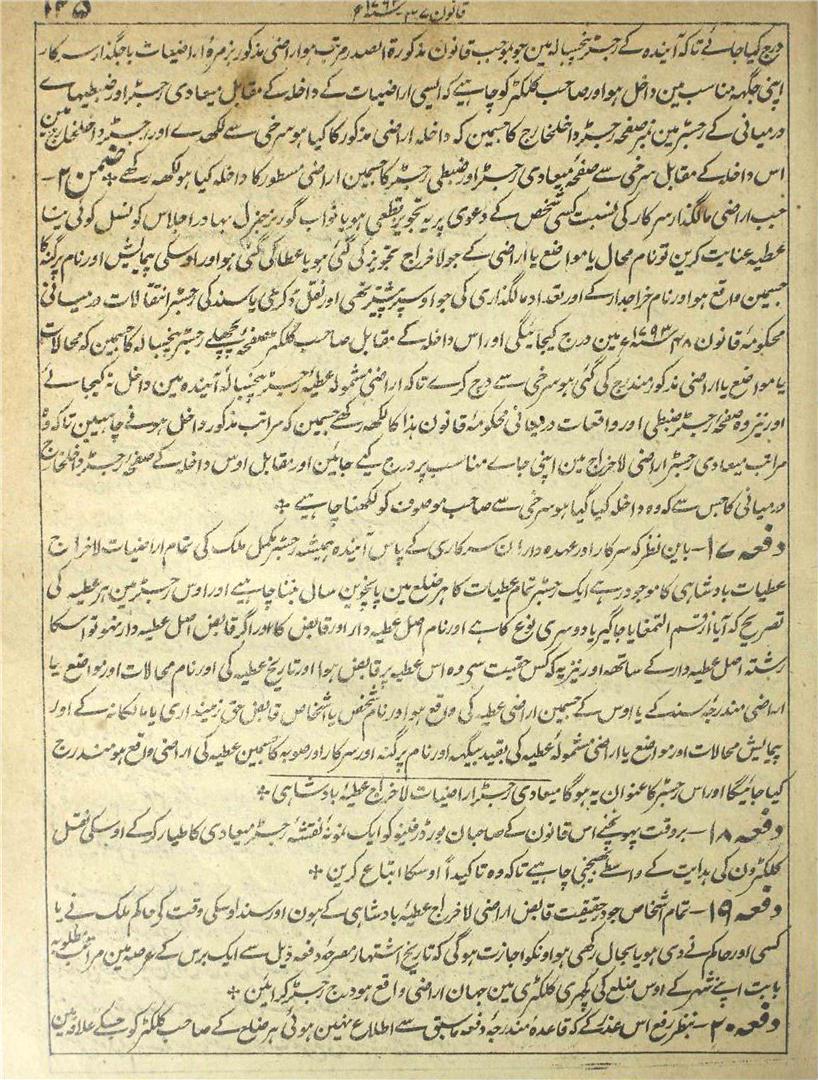 قانون ۳۷ سنہ ۱۷۹۳ ع
درج کیا جائے تاکہ آیندہ کے رجسٹر پنجسالہ مین جو بموجب قانون مذکورۃ الصدر مرتب ہو اراضی مذکور بزمرۂ اراضیات باجگذار سرکار
اپنی جگہہ مناسب مین داخل ہو اور صاحب کلکٹر کو چاہیے کہ ایسی اراضیات کے داخلہ کے مقابل میعادی رجسٹر اور ضبطیہاے
درمیانی کے رجسٹر مین نمبر صفحہ رجسٹر داخلخارج کا جسمین کہ داخلہ اراضی مذکور کا کیا ہو سرخی سے لکھدے اور رجسٹر داخلخارج مین
اس داخلہ کے مقابل سرخی سے صفحہ میعادی رجسٹر اور ضبطی رجسٹر کا جسمین اراضی مسطور کا داخلہ کیا ہو لکھہ رکھے ÷ ضمن ۲۰ ـ
جب اراضی مالگذار سرکار کی نسبت کسی شخص کے دعوی پر یہ تجویز قطعی ہو یا نواب گورنر جنرل بہادر اجلاس کونسل کوئی نیا
عطیہ عنایت کرین تو نام محال یا مواضع یا اراضی کے جو لاخراج تجویز کی گئی ہو یا عطا کی گئی ہو اور اوسکی پیمایش اور نام پرگنہ کا
جسمین واقع ہو اور نام خراجدار کے اور تعداد مالگذاری کی جو اوسپر پیشتر تھی اور نقل ڈکری یا سند کی رجسٹر انتقالات درمیانی
محکومۂ قانون ۴۸ سنہ ۱۷۹۳ ع مین درج کیجائیگی اور اس داخلہ کے مقابل صاحب کلکٹر صفحہ پچھلے رجسٹر پنجسالہ کا جسمین کہ محالات
یا مواضع یا اراضی مذکور مندرج کی گئی ہو سرخی سے درج کرے تاکہ اراضی مشمولۂ عطیہ رجسٹر پنجسالہ آیندہ مین داخل نہ کیجائے
اور نیز وہ صفحہ رجسٹر ضبطی اور واقعات درمیانی محکومۂ قانون ہذا کا لکھہ رکھے جسمین کہ مراتب مذکور داخل ہونے چاہیین تاکہ وہ
مراتب میعادی رجسٹر اراضی لاخراج مین اپنی جاے مناسب پر درج کیے جائین اور مقابل اوس داخلہ کے صفحہ رجسٹر داخلخارج
درمیانی کا جس سے کہ وہ داخلہ کیا گیا ہو سرخی سے صاحب موصوف کو لکھنا چاہیے ÷
دفعہ ۱۷ ـ باین نظر کہ سرکار اور عہدہ داران سرکاری کے پاس آیندہ ہمیشہ رجسٹر مکمل ملک کی تمام اراضیات لاخراج
عطیات بادشاہی کا موجود رہے ایک رجسٹر تمام عطیات کا ہر ضلع مین پانچوین سال بننا چاہیے اور اوس رجسٹر مین ہر عطیہ کی
تصریح کہ آیا از قسم التمغا یا جاگیر یا دوسری نوع کا ہے اور نام اصل عطیہ دار اور قابض کا اور اگر قابض اصل عطیہ دار نہو تو اسکا
رشتہ اصل عطیہ دار کے ساتھہ اور نیز یہ کہ کس حقیت سی وہ اس عطیہ پر قابض ہوا اور تاریخ عطیہ کی اور نام محالات اور مواضع یا
اراضی مندرجۂ سند کے یا اوس کے جسمین اراضی عطیہ کی واقع ہو اور نام شخص یا اشخاص قابض حق زمینداری یا مالکانہ کے اور
پیمایش محالات اور مواضع یا اراضی مشمولۂ عطیہ کی بقید بیگہہ اور نام پرگنہ اور سرکار اور صوبہ کا جسمین عطیہ کی اراضی واقع ہو مندرج
کیا جائیگا اور اس رجسٹر کا عنوان یہ ہوگا میعادی رجسٹر اراضیات لاخراج عطیۂ بادشاہی ÷
دفعہ ۱۸ ـ بروقت پہونچنے اس قانون کے صاحبان بورڈ رفینیو کو ایک نمونہ نقشہ رجسٹر میعادی کا طیار کرکے اوسکی نقل
کلکٹرون کی ہدایت کے واسطے بھیجنی چاہیے تاکہ وہ تاکیداً اوسکا اتباع کرین ÷
دفعہ ۱۹ ـ تمام اشخاص جو درحقیقت قابض اراضی لاخراج عطیۂ بادشاہی کے ہون اور سند اوسکی وقت کی حاکم ملک نے یا
کسی اور حاکم نے دی ہو یا بحال رکھی ہو اونکو اجازت ہوگی کہ تاریخ اشتہار مصرحۂ دفعہ ذیل سے ایک برس کے عرصہ مین مراتب مطلوبہ
بابت اپنے شہر کے اوس ضلع کی کچہری کلکٹری مین جہان اراضی واقع ہو درج رجسٹر کرائین ÷
دفعہ ۲۰ ـ بنظر رفع اس عذر کے کہ قاعدہ مندرجۂ دفعہ ماسبق سے اطلاع نہین ہوئی ہر ضلع کے صاحب کلکٹر کو جسکے علاقہ مین